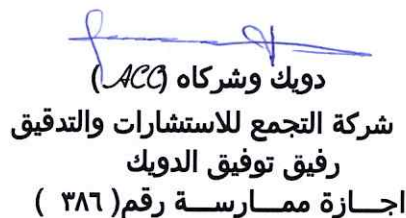 دويك وشركاه (ACC)
شركة التجمع للاستشارات والتدقيق
رفيق توفيق الدويك
اجــازة ممــارســـة رقم( ٣٨٦ )